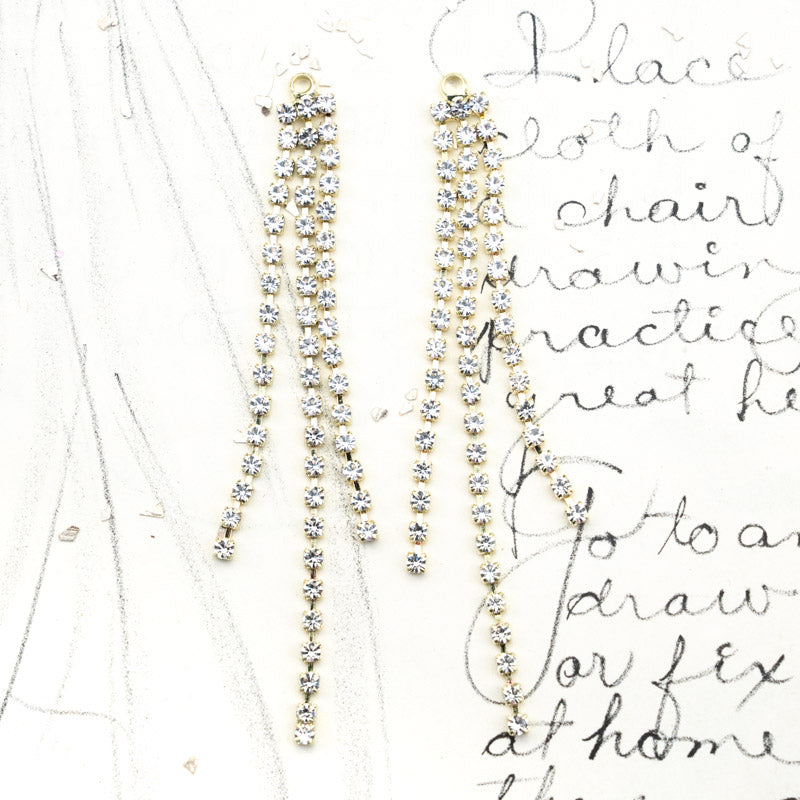 Place
cloth of
a chair
drawin
practice
great he
Go to an
draw
or fix
at home